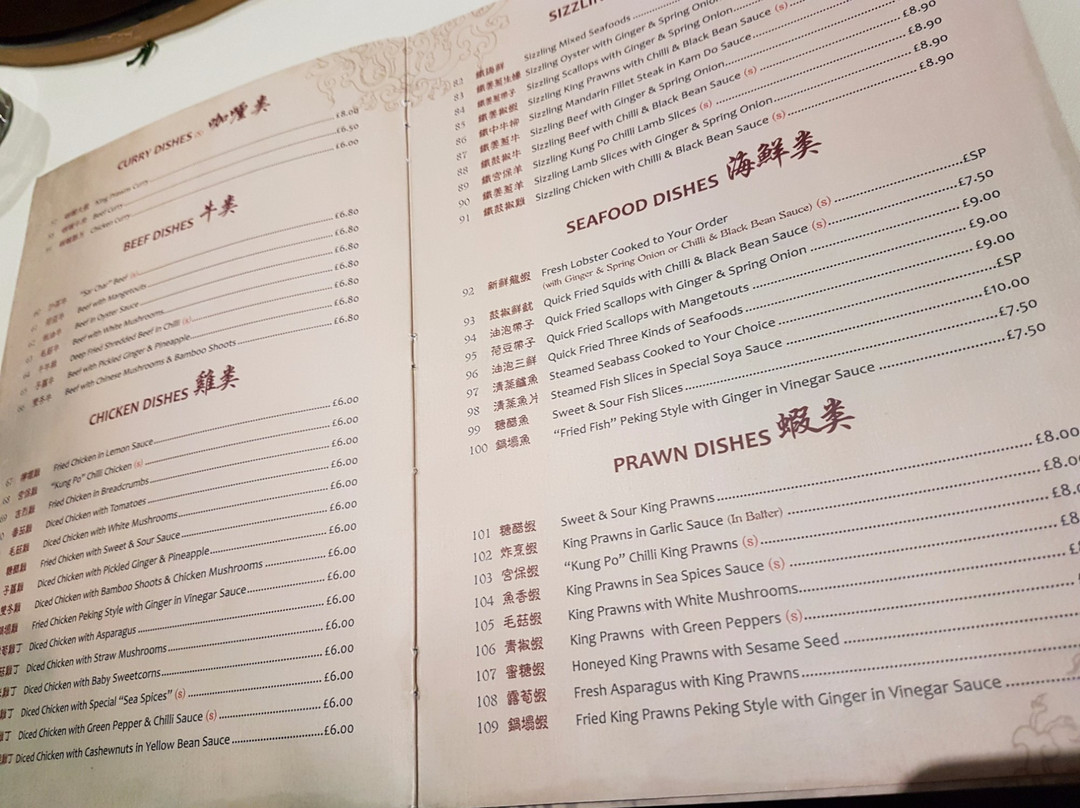 CURRY DISHES 咖喱类
King Prawns Curry £8.00
Beef Curry £6.50
Chicken Curry £6.00
BEEF DISHES 牛类
"Sar Char" Beef (s) £6.80
Beef with Mangetouts £6.80
Beef in Oyster Sauce £6.80
Beef with White Mushrooms £6.80
Deep Fried Shredded Beef in Chilli (s) £6.80
Beef with Pickled Ginger & Pineapple £6.80
Beef with Chinese Mushrooms & Bamboo Shoots
CHICKEN DISHES 雞类
67 檸檬雞 Fried Chicken in Lemon Sauce £6.00
68 宮保雞 "Kung Po" Chilli Chicken (s) £6.00
69 吉烈雞 Fried Chicken in Breadcrumbs £6.00
番茄雞 Diced Chicken with Tomatoes £6.00
毛菇雞 Diced Chicken with White Mushrooms £6.00
糖醋雞 Fried Chicken with Sweet & Sour Sauce £6.00
子蘿雞 Diced Chicken with Pickled Ginger & Pineapple £6.00
雙冬雞 Diced Chicken with Bamboo Shoots & Chicken Mushrooms £6.00
鍋塌雞 Fried Chicken Peking Style with Ginger in Vinegar Sauce £6.00
Diced Chicken with Asparagus £6.00
Diced Chicken with Straw Mushrooms £6.00
Diced Chicken with Baby Sweetcorns £6.00
Diced Chicken with Special "Sea Spices" (s) £6.00
Diced Chicken with Green Pepper & Chilli Sauce (s) £6.00
Diced Chicken with Cashewnuts in Yellow Bean Sauce £6.00
SIZZLIN
Sizzling Mixed Seafoods
82 Sizzling Oyster with Ginger & Spring Onion
83 Sizzling Scallops with Ginger & Spring Onion
84 Sizzling King Prawns with Chilli & Black Bean Sauce (s)
85 鐵中牛柳 Sizzling Mandarin Fillet Steak in Kam Do Sauce
86 鐵姜蔥牛 Sizzling Beef with Ginger & Spring Onion
87 鐵鼓椒牛 Sizzling Beef with Chilli & Black Bean Sauce (s) £8.90
88 鐵宮保羊 Sizzling Kung Po Chilli Lamb Slices (s) £8.90
89 鐵姜蔥羊 Sizzling Lamb Slices with Ginger & Spring Onion £8.90
90 鐵鼓椒雞 Sizzling Chicken with Chilli & Black Bean Sauce (s) £8.90
91
SEAFOOD DISHES 海鮮类
92 新鮮龍蝦 Fresh Lobster Cooked to Your Order £SP
(with Ginger & Spring Onion or Chilli & Black Bean Sauce) (s)
93 鼓椒鮮魷 Quick Fried Squids with Chilli & Black Bean Sauce (s) £7.50
94 油泡帶子 Quick Fried Scallops with Ginger & Spring Onion £9.00
95 荷豆帶子 Quick Fried Scallops with Mangetouts £9.00
96 油泡三鮮 Quick Fried Three Kinds of Seafoods £9.00
97 清蒸鱸魚 Steamed Seabass Cooked to Your Choice £SP
98 清蒸魚片 Steamed Fish Slices in Special Soya Sauce £10.00
99 糖醋魚 Sweet & Sour Fish Slices £7.50
100 鍋塌魚 "Fried Fish" Peking Style with Ginger in Vinegar Sauce £7.50
PRAWN DISHES 蝦类
101 糖醋蝦 Sweet & Sour King Prawns £8.00
102 炸烹蝦 King Prawns in Garlic Sauce (In Batter) £8.0
103 宮保蝦 "Kung Po" Chilli King Prawns (s) £8.
104 魚香蝦 King Prawns in Sea Spices Sauce (s) £8
105 毛菇蝦 King Prawns with White Mushrooms £
106 青椒蝦 King Prawns with Green Peppers (s)
107 蜜糖蝦 Honeyed King Prawns with Sesame Seed
108 露荀蝦 Fresh Asparagus with King Prawns
109 鍋塌蝦 Fried King Prawns Peking Style with Ginger in Vinegar Sauce